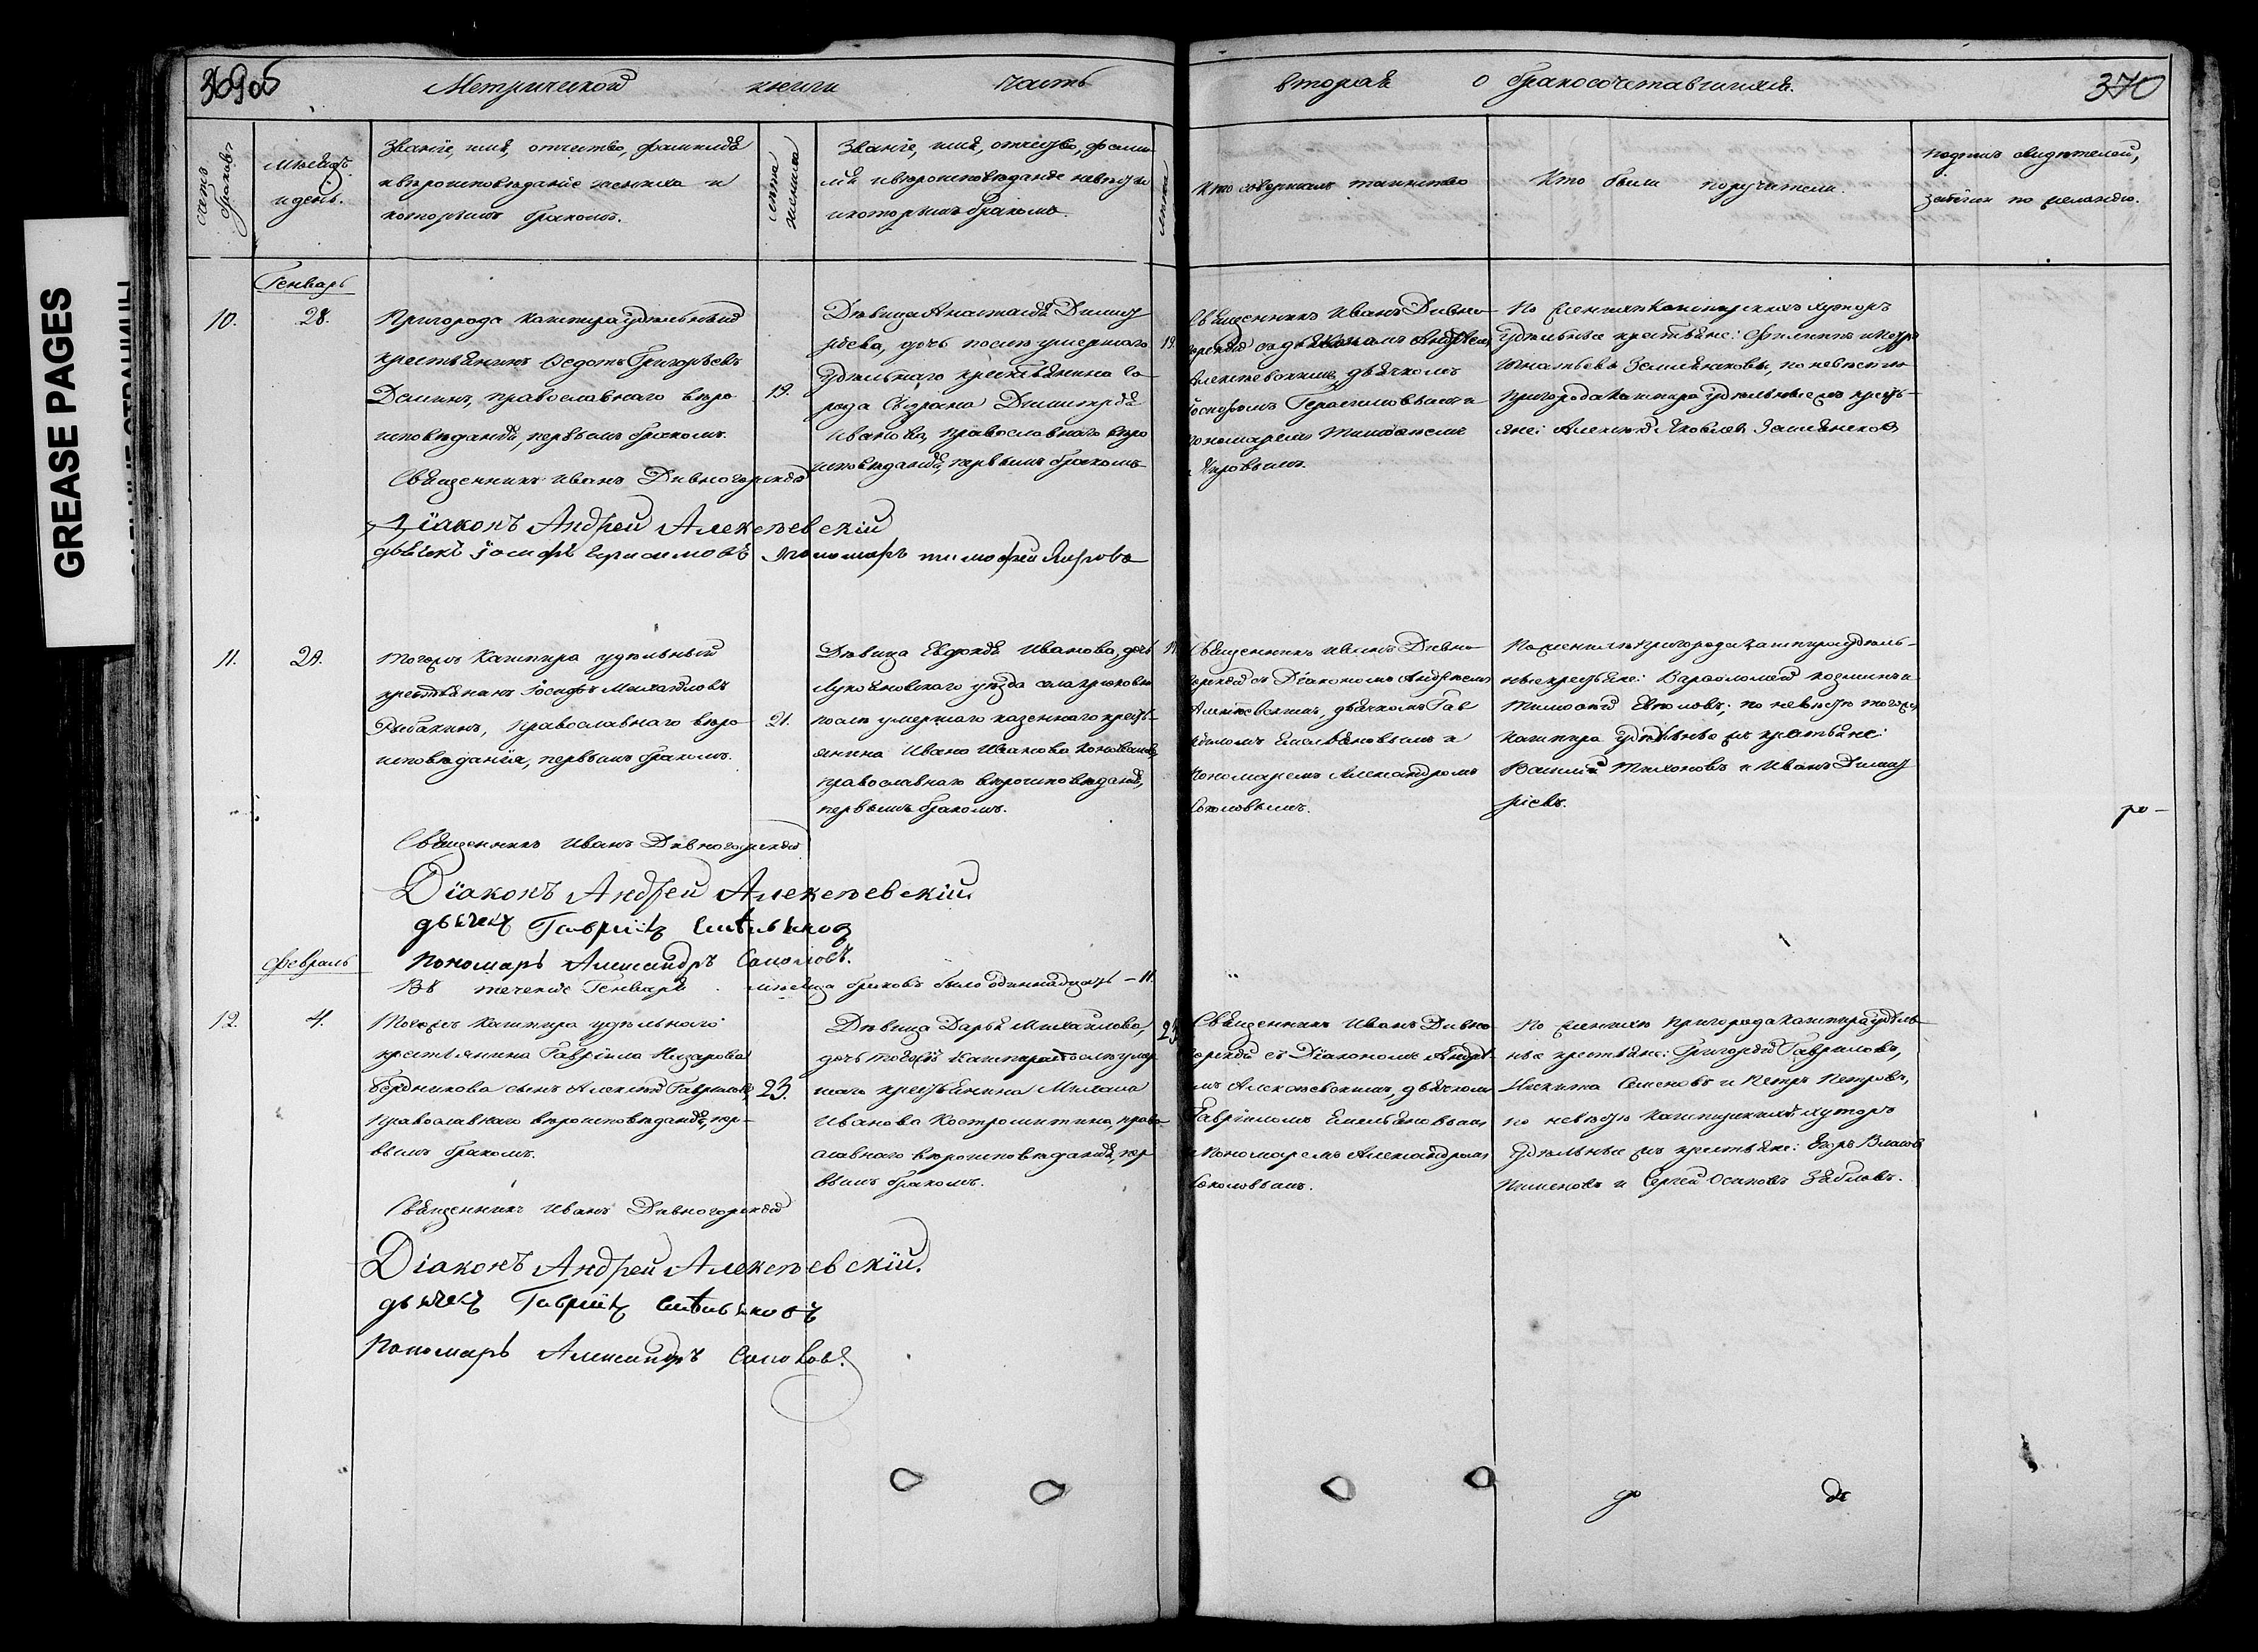 GREASE PAGES
Метрической книги часть
вторая о бракосочетавшихся.
370
Счетъ браковъ
Мѣсяцъ и день.
Званіе, имя, отчество, фамилія
и вѣроисповѣданіе жениха и
которымъ бракомъ.
лѣта жениха
Званіе, имя, отчество, фами
лія и вѣроисповѣданіе невѣсты
и которымъ бракомъ.
Кто совершалъ таинство
Кто были поручители.
Подпись свидѣтелей,
записи по желанію.
Генварь
10.
28.
Пригорода Кашпира удѣльный
крестьянинъ Ѳедотъ Григорьевъ
Деминъ, православнаго вѣро
исповѣданія, первымъ бракомъ.
19.
Дѣвица Анастасія Димит
ріева, дочь послѣ умершаго
удѣльнаго крестьянина го
рода Сызрана Димитрія
Иванова, православнаго вѣро
исповѣданія, первымъ бракомъ
19.
Священникъ Иванъ Дивно
горскій съ діакономъ Андреемъ
Алексѣевскимъ, дьячкомъ
Іосифомъ Герасимовымъ и
пономаремъ Тимофеемъ
Яировымъ.
По женихѣ Кашпирскихъ хуторъ
удѣльные крестьяне: Филиппъ и Петръ
Игнатьевы Земляковы, по невѣстѣ
пригорода Кашпира удѣльные крест-
яне: Алексѣй Яковлевъ
Священникъ Иванъ Дивногорскій
Діаконъ Андрей Алексѣевскій
дьячекъ Іосифъ Герасимовъ Пономарь Тимофей Яирова
11.
29.
Тогожъ Кашпира удѣльный
крестьянинъ Іосифъ Михайловъ
Рыбакинъ, православнаго вѣро
исповѣданія, первымъ бракомъ.
21.
Дѣвица Евфимія Иванова, дочь
Лукояновскаго уѣзда села
послѣ умершаго казеннаго крест-
янина Ивана Иванова Коновалова,
православнаго вѣроисповѣданія,
первымъ бракомъ.
Священникъ Иванъ Дивно
горскій съ Діакономъ Андреемъ
Алексѣевскимъ, дьячкомъ Гав
ріиломъ Емельяновымъ и
Пономаремъ Александромъ
Соколовымъ.
По женихѣ пригорода Кашпира удѣль-
ные крестьяне: Варѳоломей Козминъ и
Тимофей; по невѣстѣ тогожъ
Кашпира удѣльные крестьяне:
Василій Тихоновъ и Иванъ Димит
ріевъ.
Священникъ Иванъ Дивногорскій
Діаконъ Андрей Алексѣевскій
дьячекъ Гавріилъ Емельяновъ
Пономарь Александръ Соколовъ.
Февраль
Въ теченіе Генваря мѣсяца браковъ было одиннадцать – 11.
12.
4.
Тогожъ Кашпира удѣльнаго
крестьянина Гавріила Назарова
Бердникова сынъ Алексѣй Гавриловъ,
православнаго вѣроисповѣданія, пер-
вымъ бракомъ.
23.
Дѣвица Дарья Михайлова,
дочь тогожъ Кашпира послѣ умер
шаго крестьянина Михаила
Иванова Костромитина, право
славнаго вѣроисповѣданія, пер
вымъ бракомъ.
23
Священникъ Иванъ Дивно
горскій съ Діакономъ Андре
емъ Алексѣевскимъ, дьячкомъ
Гавріиломъ Емельяновымъ
Пономаремъ Александромъ
Соколовымъ.
По женихѣ пригорода Кашпира удѣль
ные крестьяне: Григорій Гавриловъ,
Никита Семеновъ и Петръ Петровъ,
по невѣстѣ Кашпирскихъ хуторъ
удѣльные крестьяне: Егоръ Власовъ
Пименовъ и Сергей Осиповъ Зябловъ.
Священникъ Иванъ Дивногорскій
Діаконъ Андрей Алексѣевскій.
дьячекъ Гавріилъ Емельяновъ
Пономарь Александръ Соколовъ.